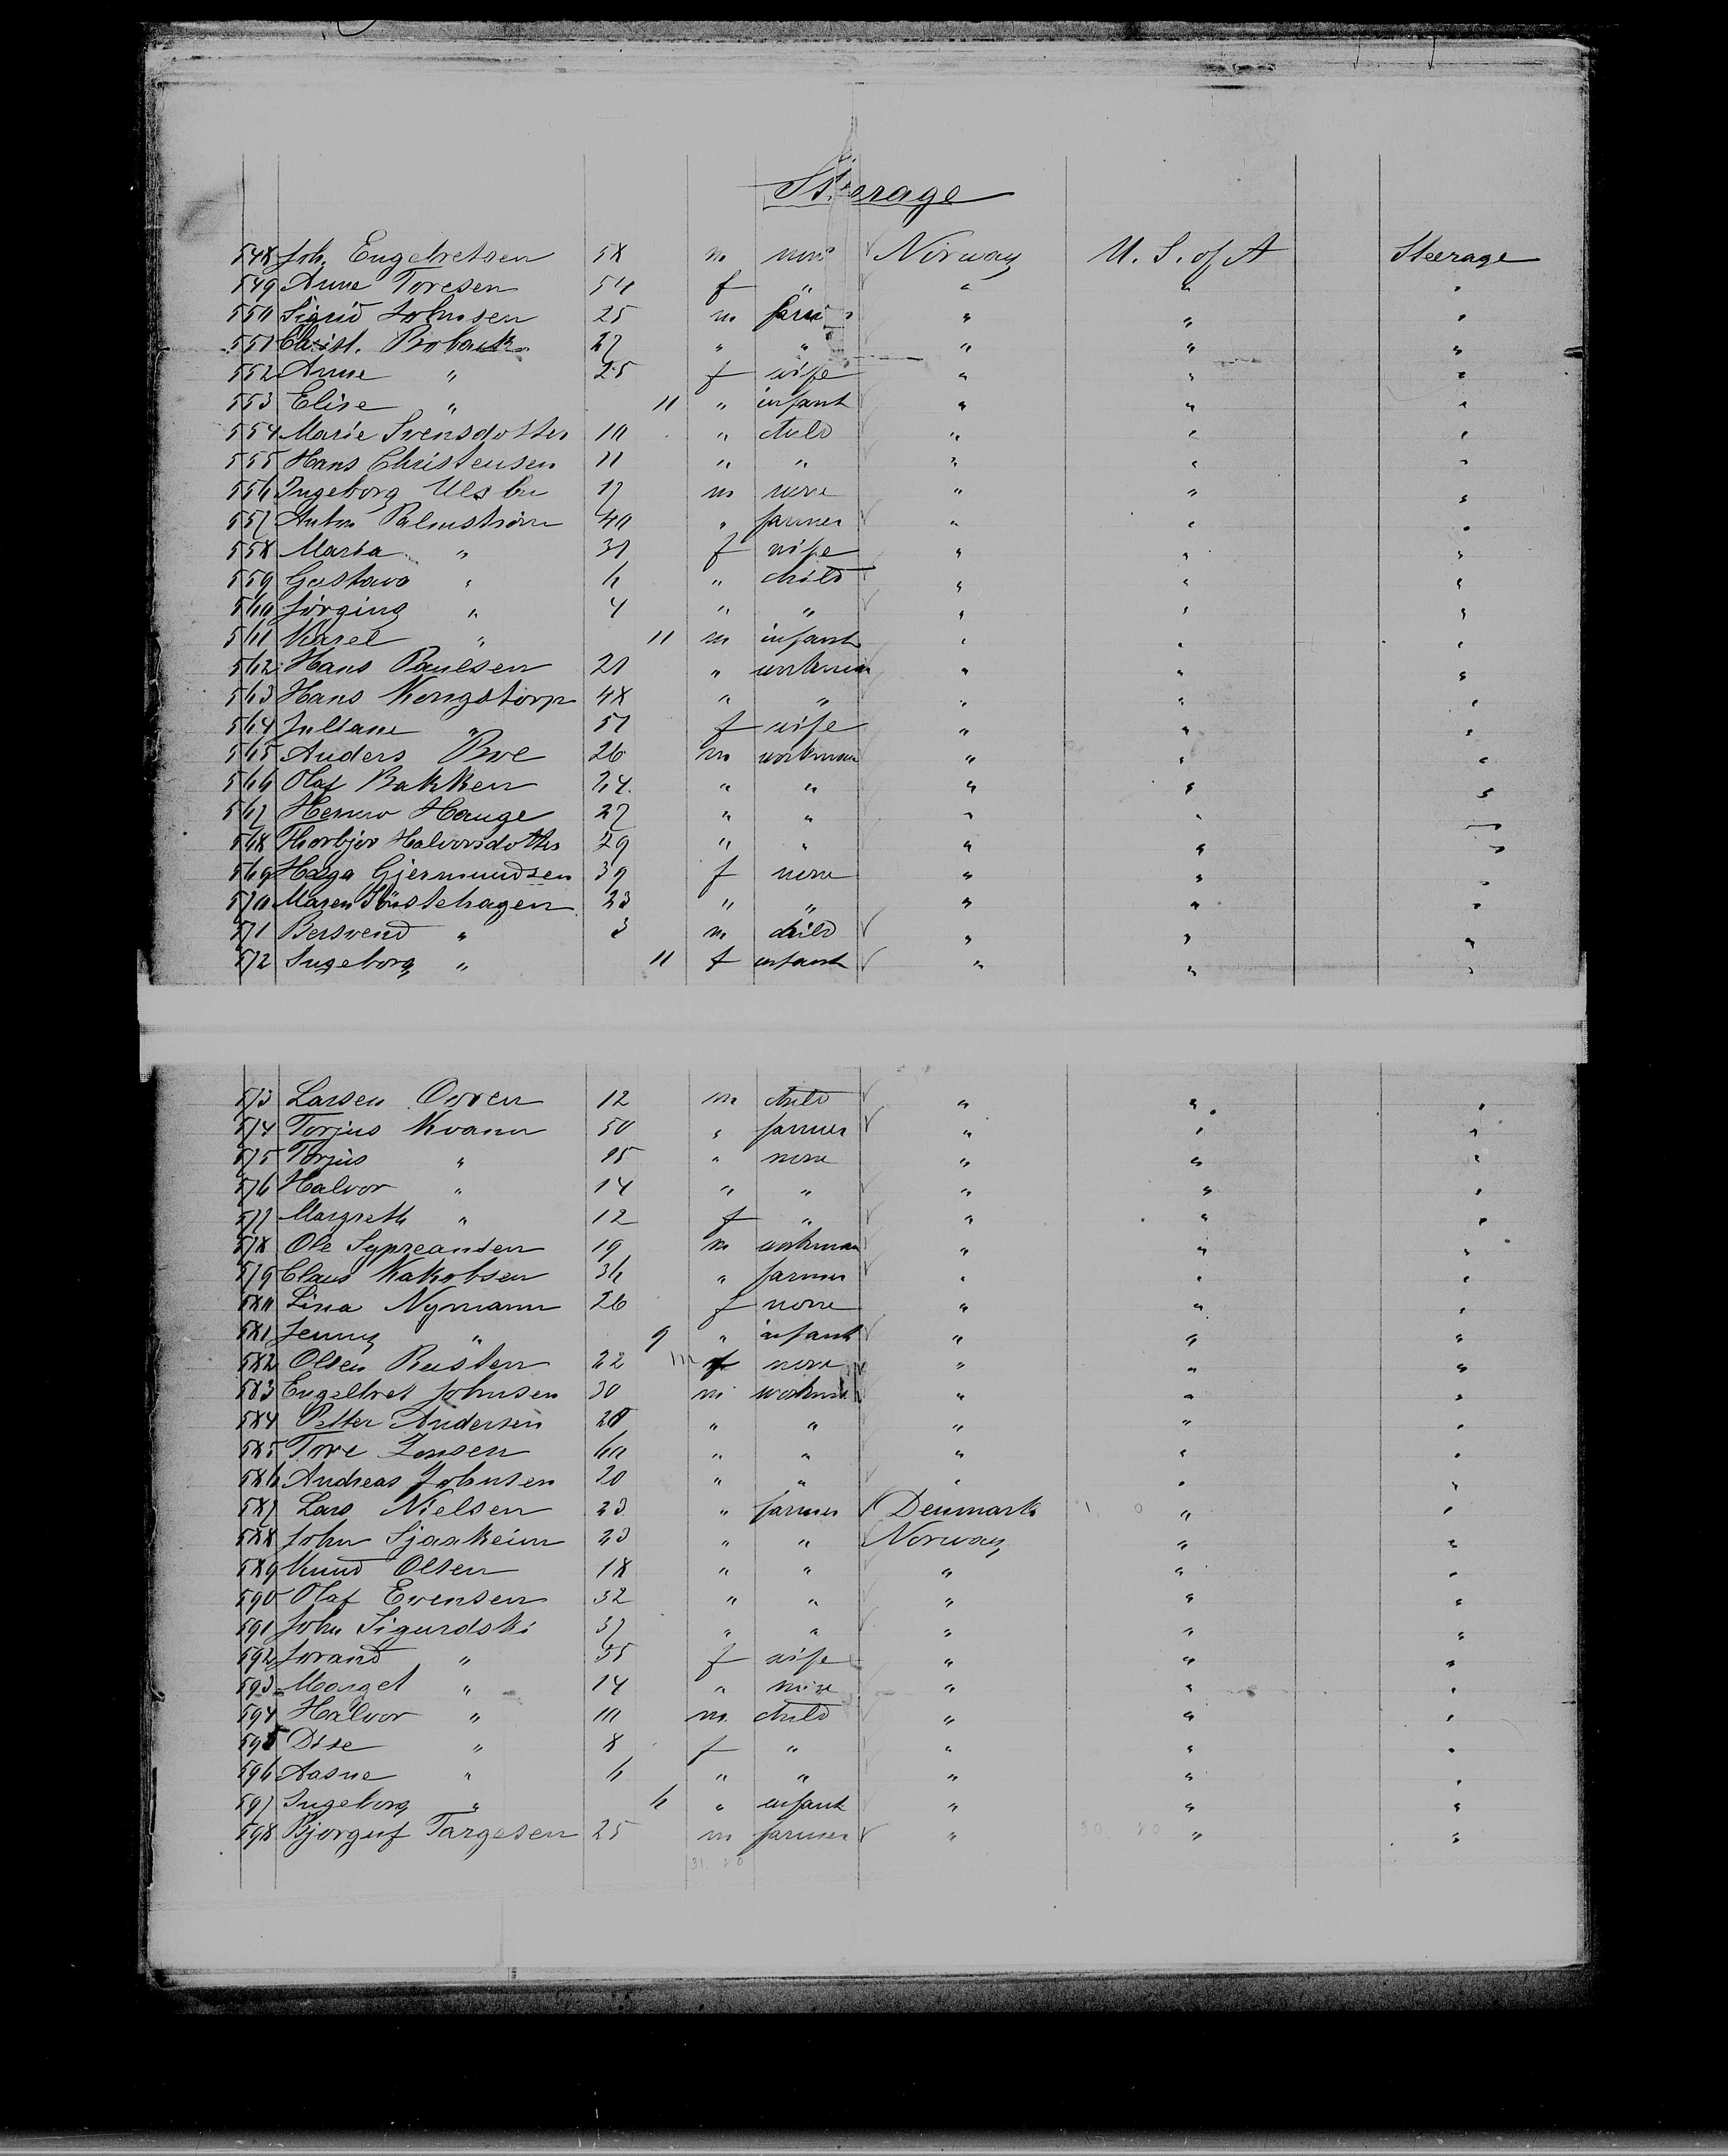 Steerage
548 Joh. Engebretsen 58 m none Norway U. S. of A Steerage
549 Anne Toresen 54 f " " " "
550 Sigrid Johnsen 25 m " " "
551 Christ. Broback 27 " " " " "
552 Anne " 25 f wife " " "
553 Elise " 11 " infant " " "
554 Marie Svensdotter 10 " child " " "
555 Hans Christensen 11 " " " " "
556 Ingeborg Ulsbu 17 m none " " "
557 Anton Palmström 40 " farmer " " "
558 Maria " 31 f wife " " "
559 Gustava " 6 " child " " "
560 Jörging " 4 " " " " "
561 Karel " 11 m infant " " "
562 Hans Paulsen 21 " workman " " "
563 Hans Kongstorp 48 " " " " "
564 Juliane " 51 f wife " " "
565 Anders Boe 26 m workman " " "
566 Olaf Bakken 24 " " " " "
567 Hauge 27 " " " " "
568 Thorbjor Halvorsdotter 29 " " " " "
569 Hæga Gjermundsen 39 f none " " "
570 Maren 23 " " " " "
571 Bersvend " 3 m child " " "
572 Ingeborg " 11 f infant " " "
573 Larsen Ovren 12 m child " " "
574 Torjus Kvann 50 " farmer " " "
575 Torjus " 15 " none " " "
576 Halvor " 14 " " " " "
577 Margreth " 12 f " " " "
578 Ole Sypreansen 19 m workman " " "
579 Claus Kakobsen 36 " farmer " " "
580 Lina Nymann 26 f none " " "
581 Jenny " 9 " infant " " "
582 Olsen Rusten 22 m none " " "
583 Engelbret Johnsen 30 m workman " " "
584 Petter Andersen 28 " " " " "
585 Tore Jonsen 60 " " " " "
586 Andreas Johnsen 20 " " " " "
587 Lars Nielsen 23 " farmer Denmark " "
588 John Sjaakeim 23 " " Norway " "
589 Knud Olsen 18 " " " " "
590 Olaf Evensen 32 " " " " "
591 John Sigurdski 37 " " " " "
592 Jorand " 35 f wife " " "
593 Marget " 14 " none " " "
594 Halvor " 10 m child " " "
595 Dise " 8 f " " " "
596 Aasne " 6 " " " " "
597 Ingeborg " 6 " infant " " "
598 Bjorguf Targesen 25 m farmer " " "